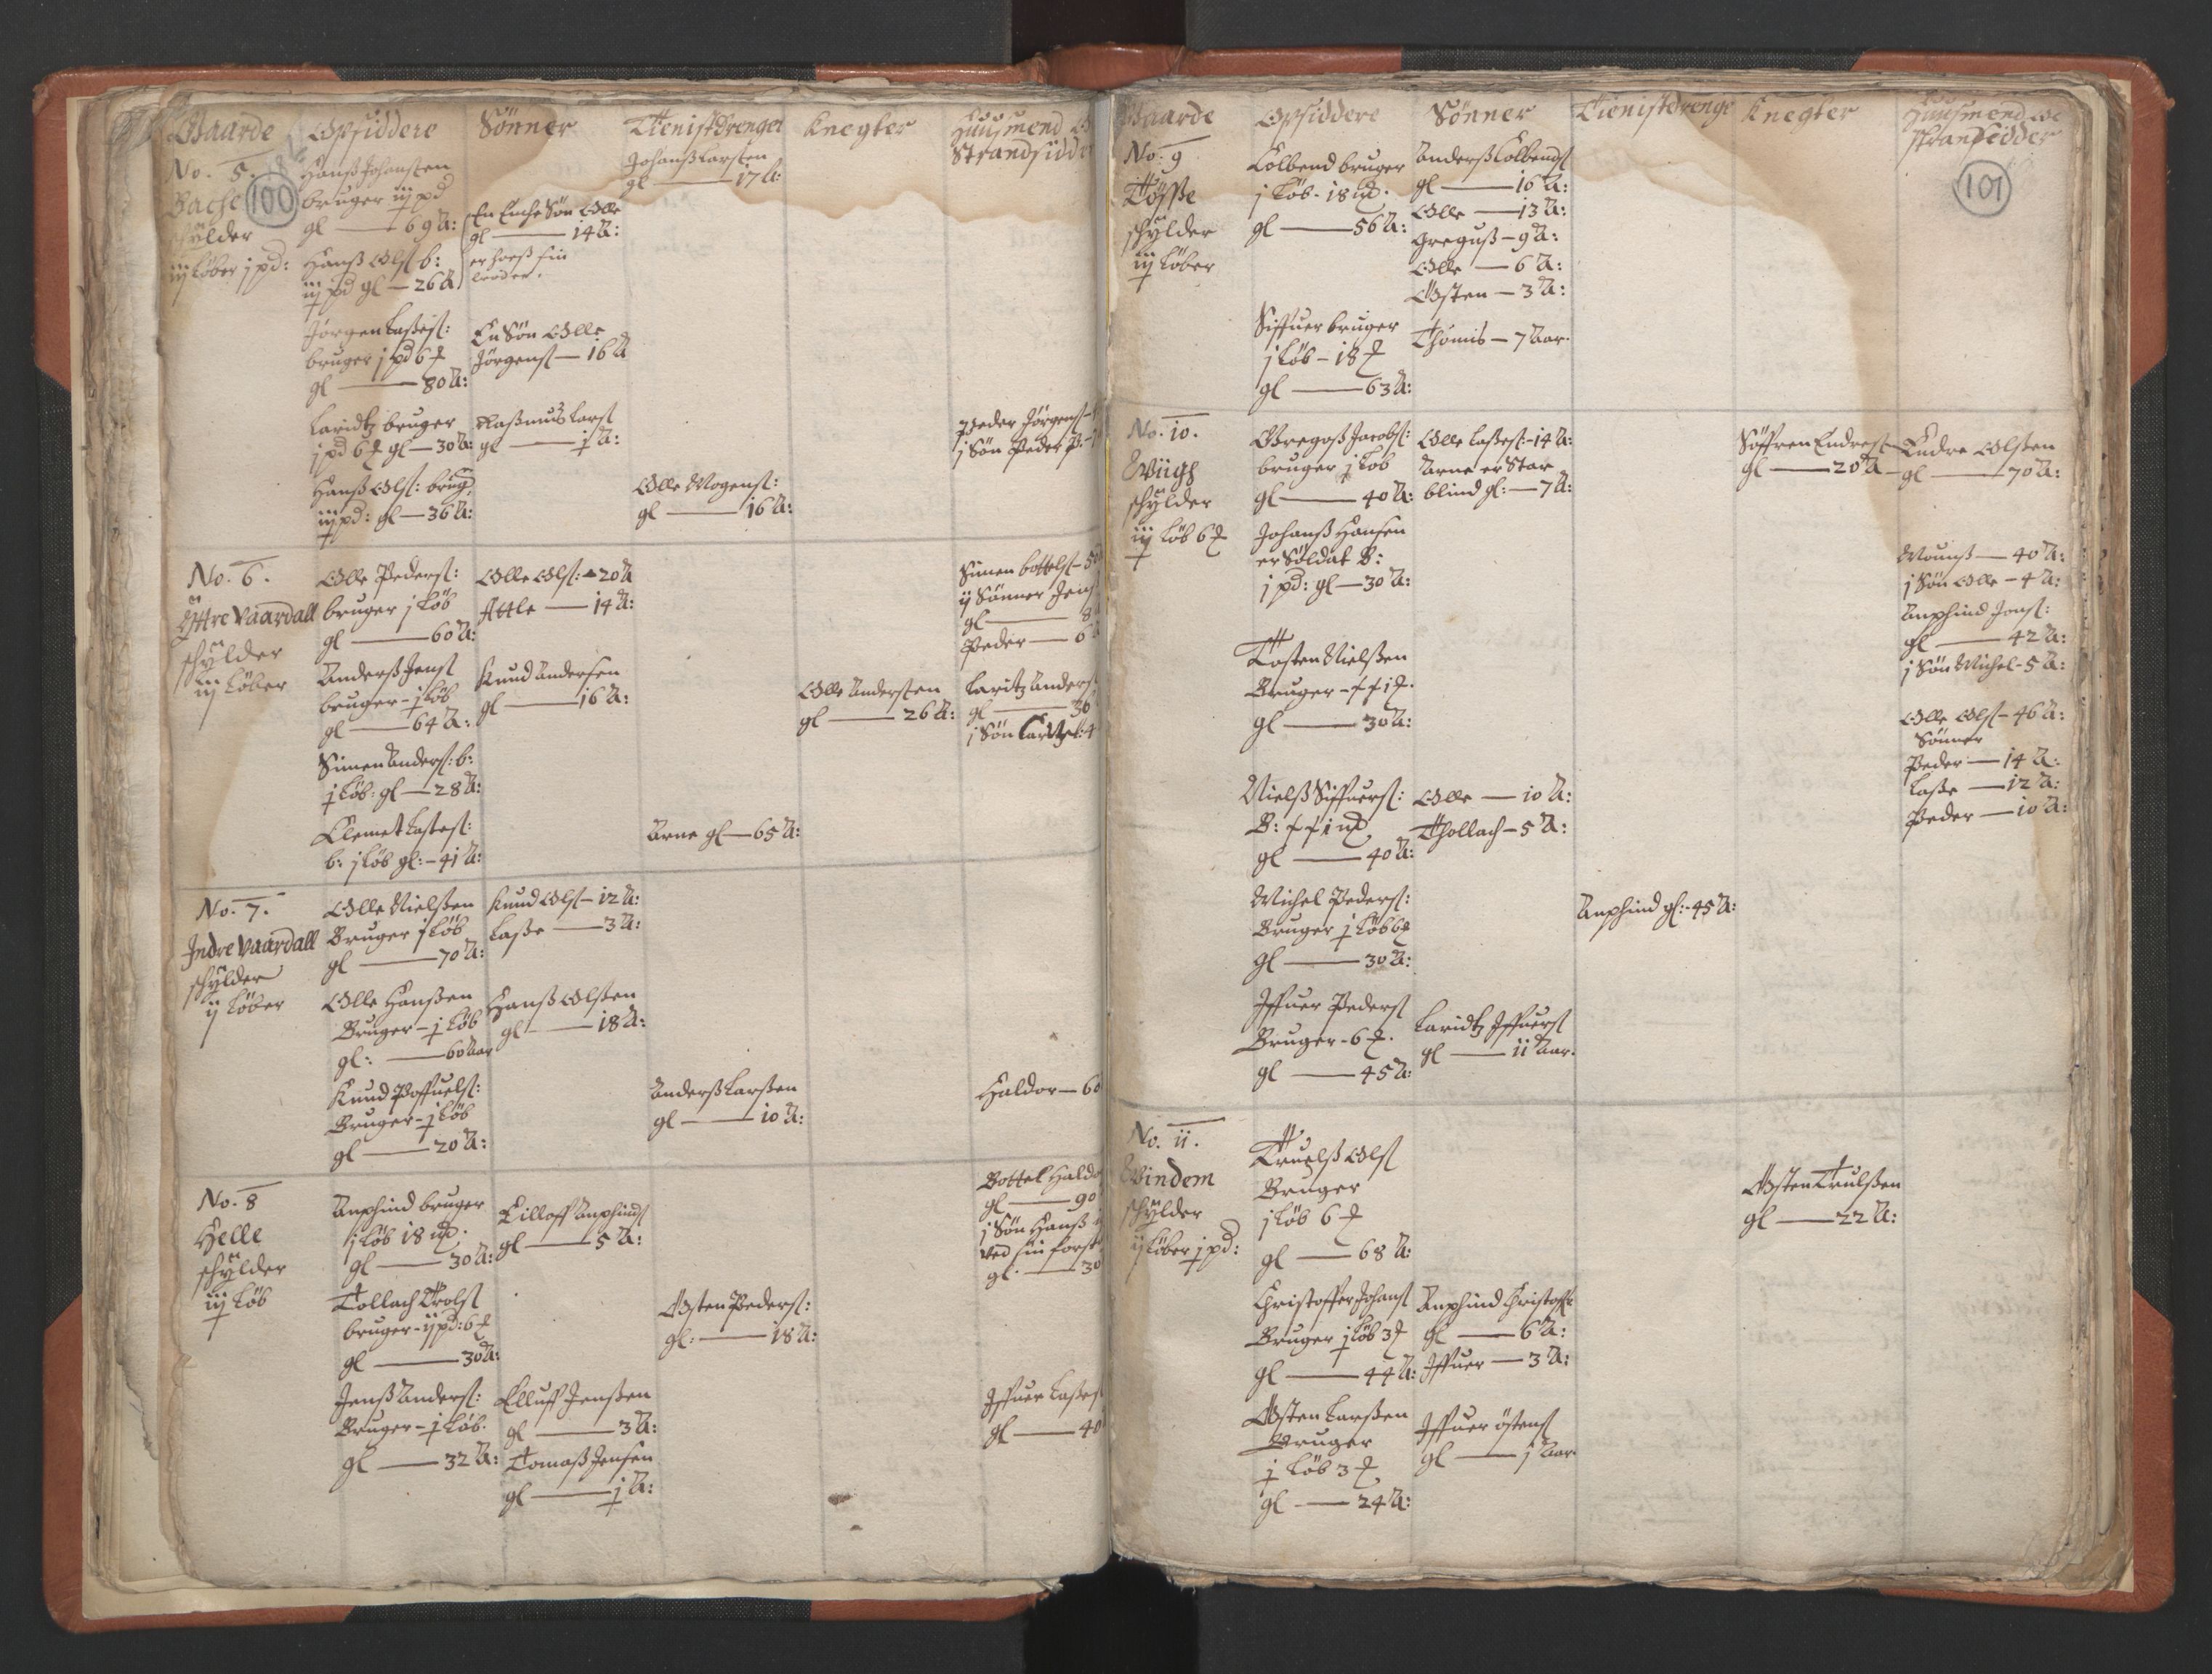 Gaarde Opsiddere Sönner Tienistdrenger Knegter Huusmend
Strandsidde
No. 5.
100
Bache
schÿlder
iij Løber j pd:
Hanß Johansen
bruger iij pd
gl — 69 A:
Hanß Olsß b:
iij pd gl — 26 A
Jørgen Laßeß:
bruger j pd 6
gl — 80 A:
Laridtz bruger
j pd 6 gl — 30 A:
Hanß Olsß: brug
iij pd: gl — 36 A:
En Søn Olle
gl — 14 A:
En Søn Olle
Jørgensß — 16 A
Raßmus Larsß
gl — j A:
Johanß Larsen
gl — 17 A:
Olle Mogensß:
gl — 16 A:
Peder Jørgensß
j Søn Peder P.
No. 6.
Ÿttre Vaardall
schÿlder
iij Løber
Olle Pedersß:
bruger j Løb
gl — 60 A:
Anderß Jensß
bruger - j Løb
gl — 64 A:
Simen Andersß: b:
j Løb: gl — 28 A:
Clemet Laßesß:
b: j Løb gl: — 41 A:
Olle Olsß: — 20 A
Attle — 14 A:
Knud Andersen
gl — 16 A:
Arne gl — 65 A:
Olle Andersen
gl — 26 A:
Simen bottelsß — 50
ij Sönner Jens
gl — 8
Peder — 6
Laritz Andersß
gl — 36
j Søn
No. 7.
Indre Vaardall
schÿlder
ij Løber
Olle Nielßen
Bruger j Løb
gl — 70 A:
Olle Hanßen
Bruger - j Løb
gl: — 60 Aar
Knud Poffuelsß:
Bruger - j Løb
gl — 20 A:
Knud Olsß — 12 A:
Laße — 3 A:
Hanß Olßen
gl — 18 A:
Anderß Larßen
gl — 10 A:
Haldor — 60
No. 8
Helle
schÿlder
iij Løb
Anphind bruger
j Løb 18
gl — 30 A:
Tollach Trolsß
bruger - ij pd: 6
gl — 30 A:
Jenß Andersß:
Bruger - j Løb.
gl — 32 A:
Eilloff Anphindsß
gl — 5 A:
Elluff Jenßen
gl — 3 A:
Tomaß Jensen
gl — j A:
Østen Pedersß:
gl: — 18 A:
Bottel Haldo
gl — 90
j Søn Hanß
ved sin
gl. — 30
Iffuer Laßes
gl — 40
Gaarde Opsiddere Sönner Tienistdrenge Knegter Huusmend oc
Stransidder
101
No. 9
Tösse
schÿlder
iij Løber
Colbend bruger
j Løb - 18
gl — 56 A:
Siffuer bruger
j Løb - 18
gl — 63 A:
Anderß Colbendsß
gl — 16 A:
Olle — 13 A:
Greguß — 9 A:
Olle — 6 A:
Østen — 3 A:
Thomis — 7 Aar.
No. 10.
schÿlder
iij Løb 6
Gregoß Jacobsß:
bruger j Løb
gl — 40 A:
Johanß Hansen
er Soldat B:
j pd: gl — 30 A:
Tosten Nielßen
Bruger
gl — 30 A:
Nielß Siffuersß:
B:
gl — 40 A:
Michel Pedersß:
Bruger j Løb 6
gl — 30 A:
Iffuer Pedersß
Bruger - 6
gl — 45 A:
Olle Laßesß: - 14 A:
Arne er Star
blind gl: — 7 A:
Olle — 10 A:
Thollach — 5 A:
Laridtz Iffuersß
gl — 11 Aar.
Anphind gl: - 45 A:
Söffren Endresß
gl — 20 A
Endre Olßen
gl — 70 A:
Mounß — 40 A:
j Søn Olle — 4 A:
Anphind Jensß:
gl — 42 A:
j Søn Michel - 5 A:
Olle Olsß — 46 A:
Sönner
Peder — 14 A:
Laße — 12 A:
Peder — 10 A:
No. 11.
Qvindem
schÿlder
ij Løber j pd:
Truelß Olsß
Bruger
j Løb 6
gl — 68 A:
Christoffer Johansß
Bruger j Løb 3
gl — 44 A:
Østen Larßen
Bruger
j Løb 3
gl — 24 A:
Anphind Christoff
gl — 6 A:
Iffuer — 3 A:
Iffuer östensß
gl — j Aar
Østen Trulßen
gl — 22 A: